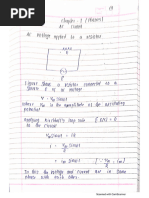 Chapter 7 (Theories)
AC Circuit
AC Voltage applied to a resistor
Figure shows a resistor connected to a
source E of ac voltage
V = Vm sin ωt
where Vm is the amplitude of the oscillating
potential
Applying Kirchhoff's loop rule (Σ E(t) = 0
to the circuit
Vm sin ωt = iR
i = Vm sin ωt
R
In this the voltage and current are in same
phase with each other